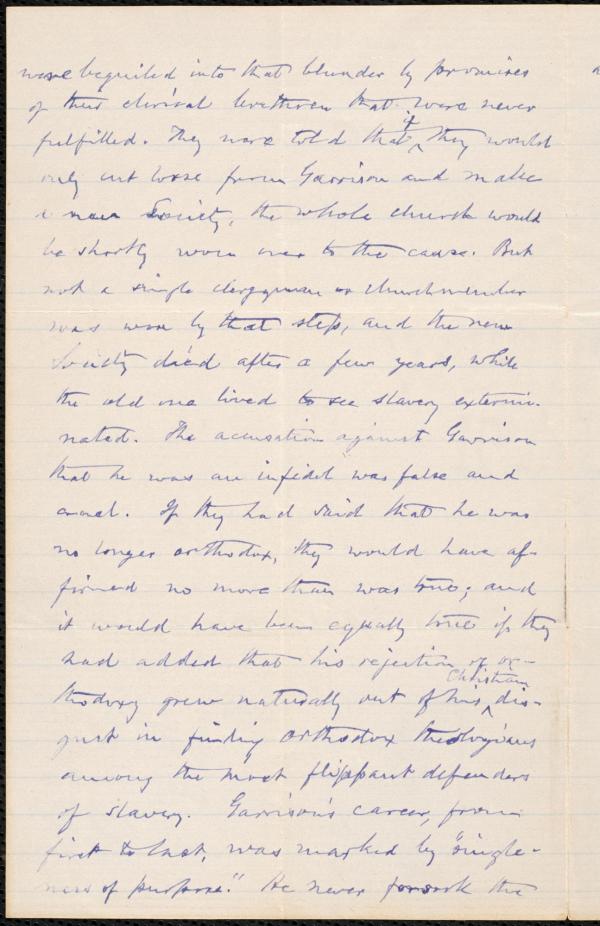 were beguiled into that blunder by promises
of their clerical brethren that were never
fulfilled. They were told that if they would
only cut loose from Garrison and make
a new Society, the whole church would
be shortly won over to the cause. But
not a single clergyman or churchmember
was won by that step, and the new
Society died after a few years, while
the old one lived to see slavery extermi-
nated. The accusation against Garrison
that he was an infidel was false and
cruel. If they had said that he was
no longer orthodox, they would have af-
firmed no more than was true; and
it would have been equally true if they
had added that his rejection of or-
thodoxy grew naturally out of his Christian dis-
gust in finding orthodox theologians
among the most flippant defenders
of slavery. Garrison's career, from
first to last, was marked by "single-
ness of purpose." He never forsook the